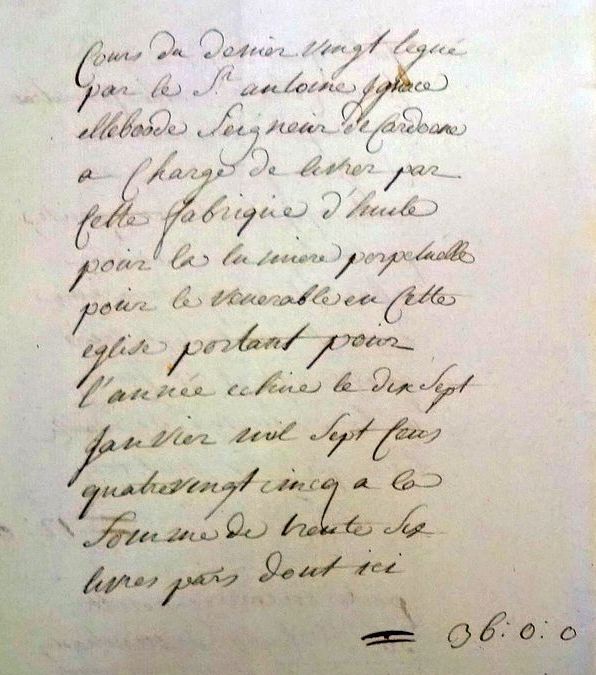 Cours du denier vingt legué
par le Sr. antoine Ignace
elleboode Seigneur de Cardone
a Charge de livrer par
Cette fabrique d'huile
pour la lumiere perpetuelle
pour le Venerable en Cette
eglise portant pour
l'année echue le dix Sept
Janvier mil Sept Cens
quatrevingt cincq a la
Somme de trente Six
livres pars dont ici
= 36 : 0 : 0